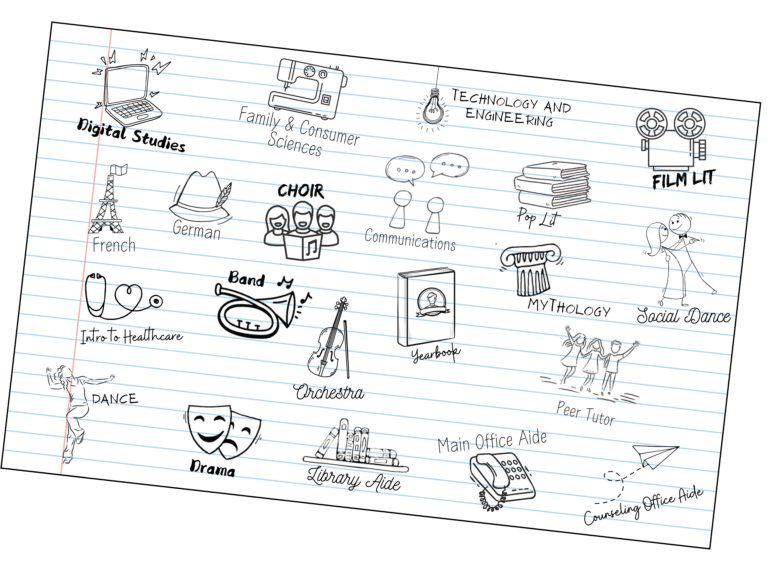 Digital Studies
Family & Consumer
Sciences
TECHNOLOGY AND
ENGINEERING
FILM LIT
French
German
CHOIR
Communications
Pop Lit
MYTHOLOGY
Social Dance
Intro to Healthcare
Band
Orchestra
Yearbook
Peer Tutor
DANCE
Drama
Library Aide
Main Office Aide
Counseling Office Aide